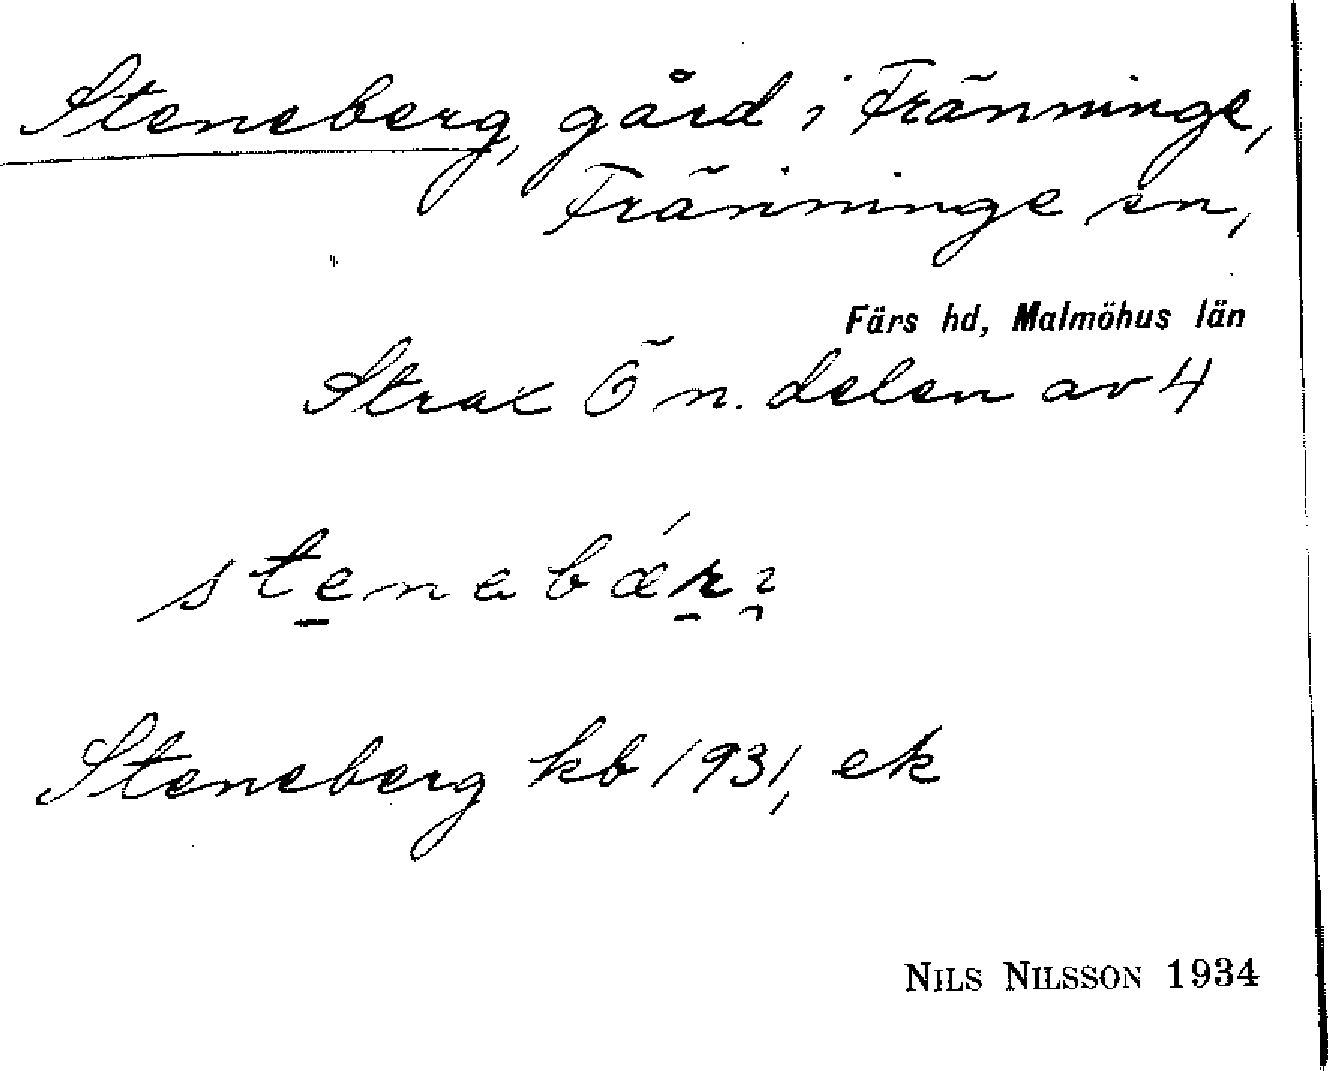 Steneberg, gård i Fränninge,
Fränninge sn,
Färs hd, Malmöhus län
Strax Ö n. delen av 4
Steneberg kb 1931, ek
NILS NILSSON 1934